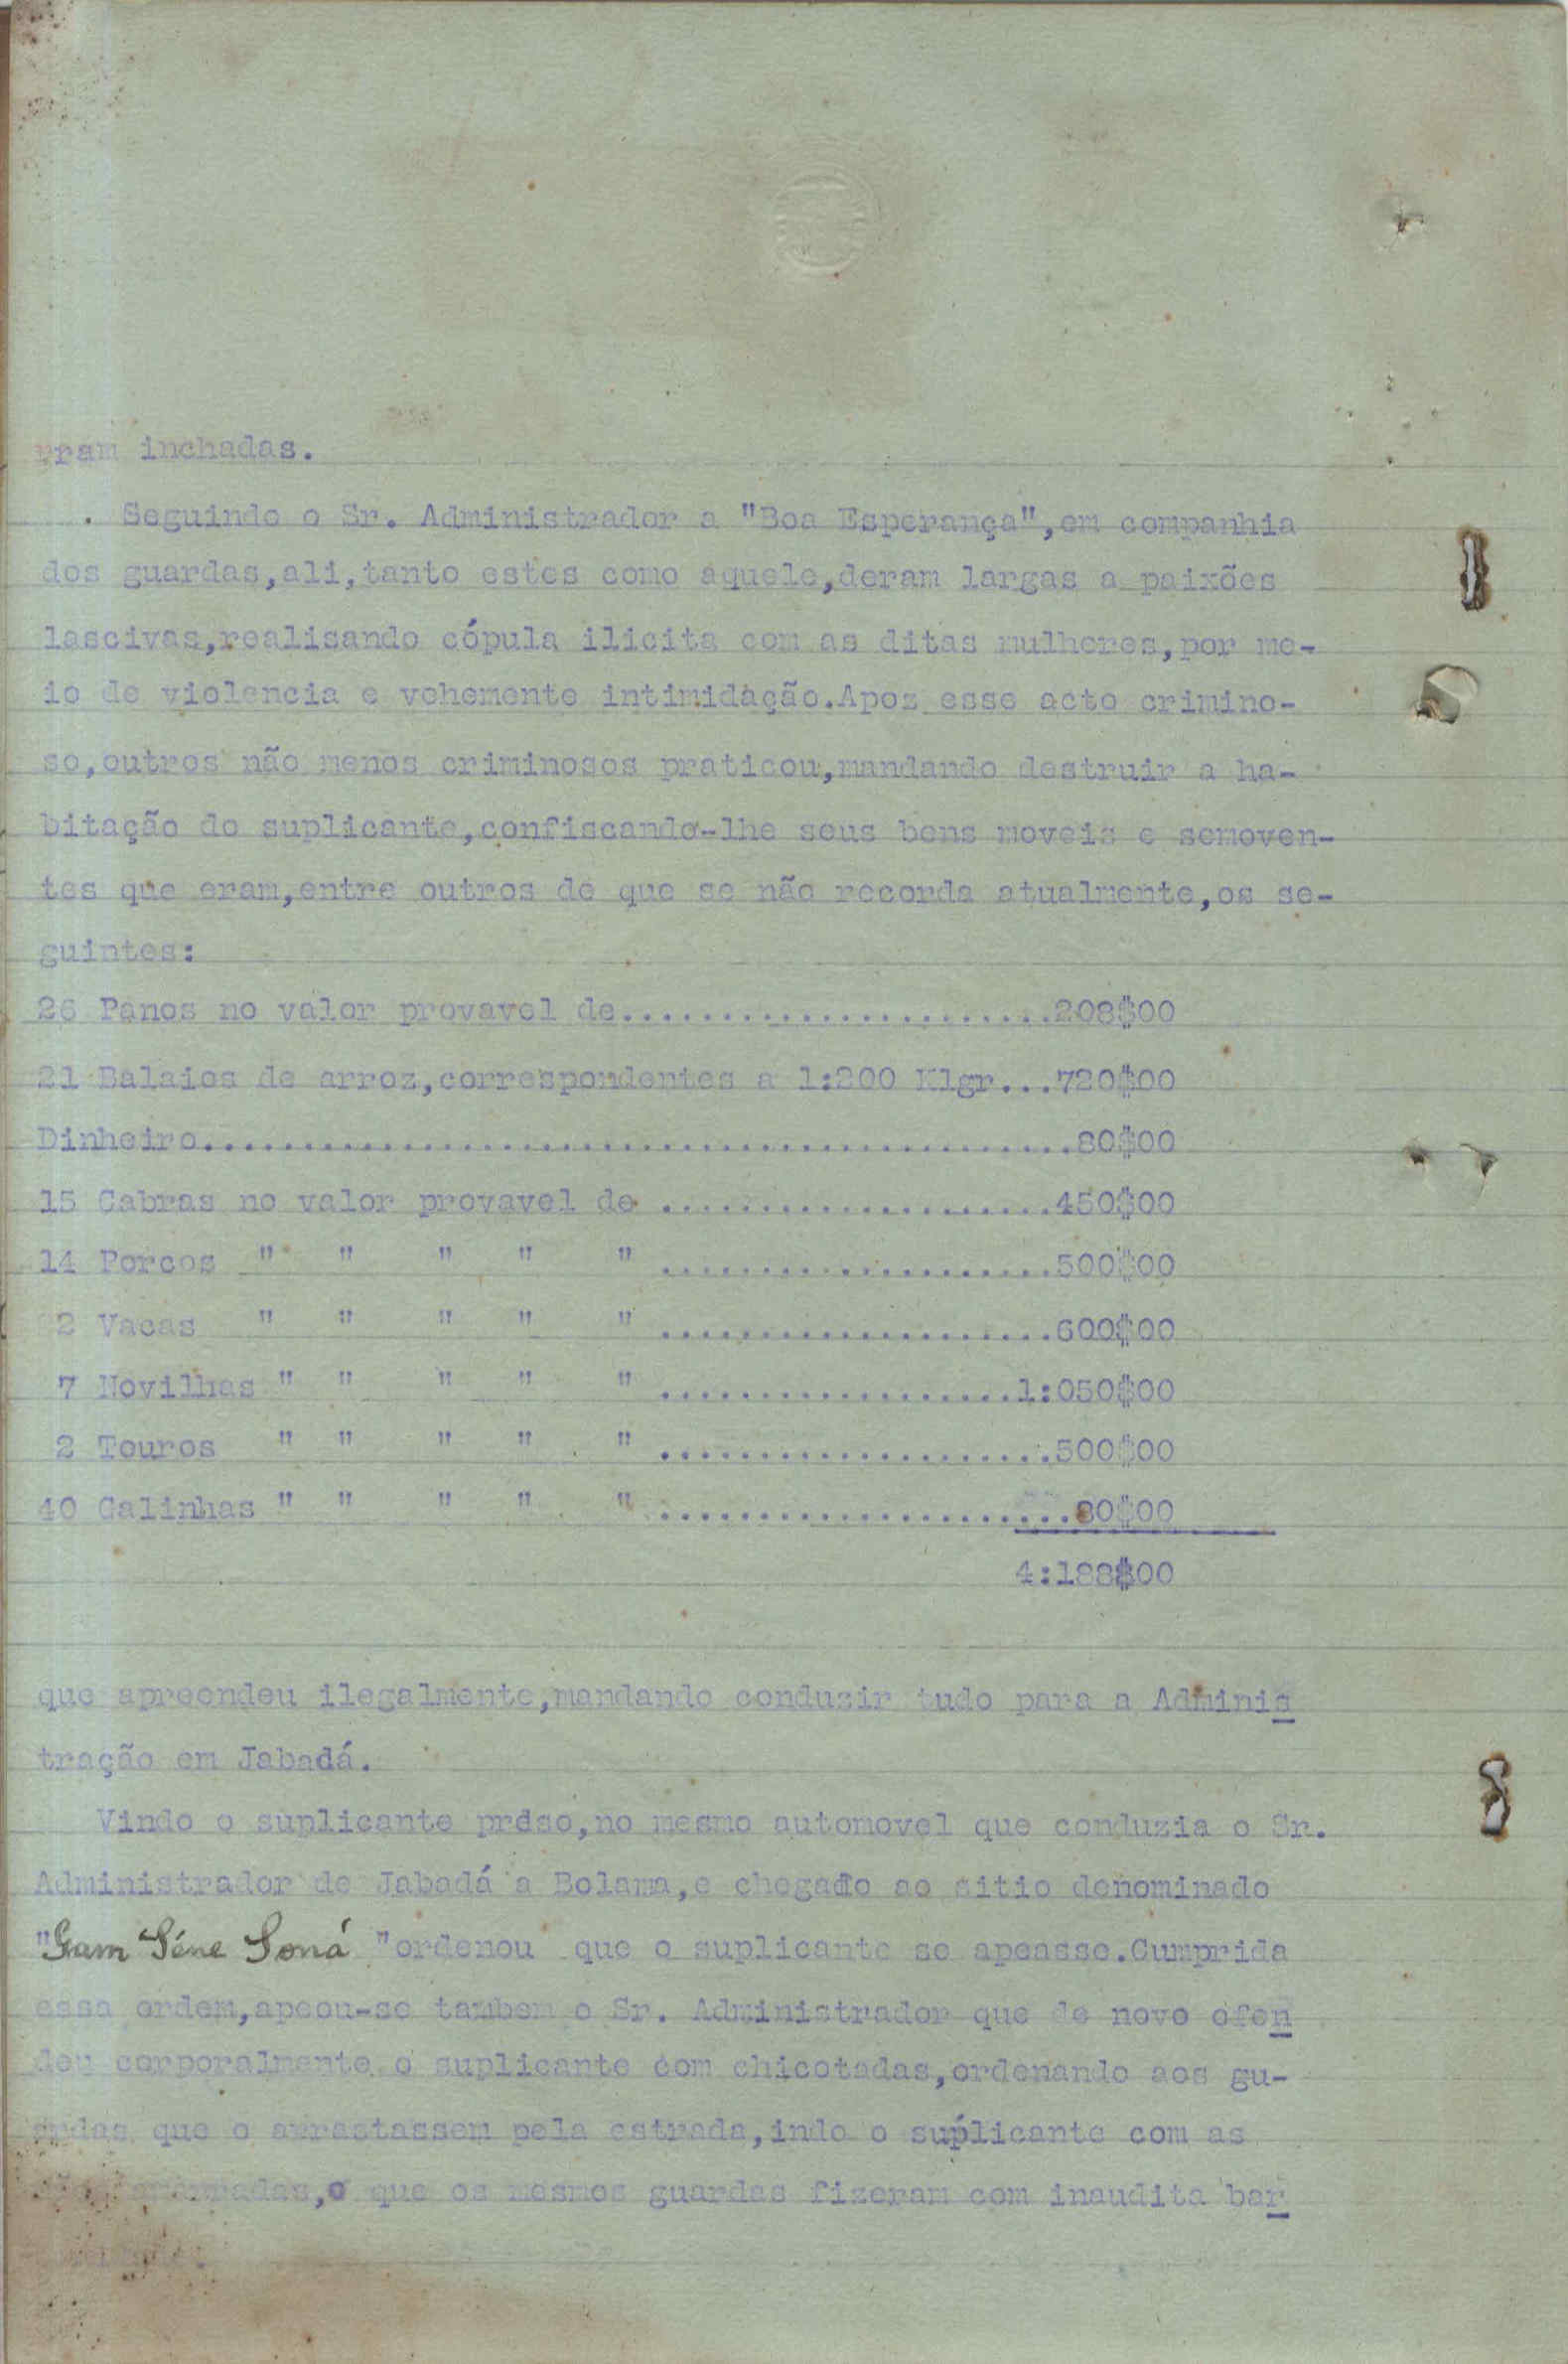 eram inchadas.
Seguindo o Sr. Administrador a "Boa Esperança",em companhia
dos guardas,ali,tanto estes como aquele,deram largas a paixões
lascivas,realisando cópula ilicita com as ditas mulheres,por me-
io de violencia e vehemente intimidação.Apoz esse acto crimino-
so,outros não menos criminosos praticou,mandando destruir a ha-
bitação do suplicante,confiscando-lhe seus bens moveis e semoven-
tes que eram,entre outros de que se não recorda atualmente,os se-
guintes:
26 Panos no valor provavel de......................208$00
21 Balaios de arroz,correspondentes a 1:200 Klgr...720$00
Dinheiro............................................80$00
15 Cabras no valor provavel de ....................450$00
14 Porcos " " " " " ....................500$00
2 Vacas " " " " " ....................600$00
7 Novilhas " " " " " ..................1:050$00
2 Touros " " " " " ....................500$00
40 Galinhas " " " " " .....................80$00
4:188$00
que apreendeu ilegalmente,mandando conduzir tudo para a Adminis
tração em Jabadá.
Vindo o suplicante prêso,no mesmo automovel que conduzia o Sr.
Administrador de Jabadá a Bolama,e chegado ao sitio denominado
"Gam Séne Soná "ordenou que o suplicante se apeasse.Cumprida
essa ordem,apeou-se tambem o Sr. Administrador que de novo ofen
deu corporalmente o suplicante com chicotadas,ordenando aos gu-
ardas que o arrastassem pela estrada,indo o suplicante com as
amarradas,o que os mesmos guardas fizeram com inaudita bar